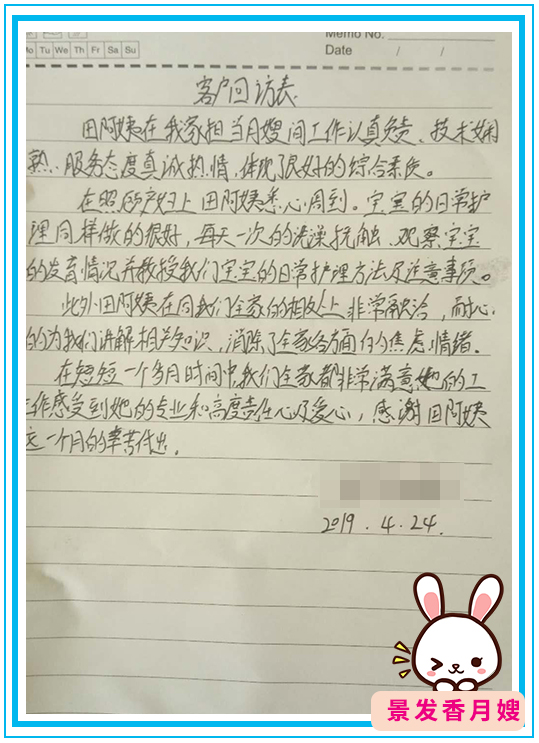 Memo No.
Mo Tu We Th Fr Sa Su
Date / /
客户回访表
田阿姨在我家担当月嫂间工作认真负责、技术娴
熟、服务态度真诚热情,体现了很好的综合素质。
在照顾产妇上田阿姨悉心周到。宝宝的日常护
理同样做的很好,每天一次的洗澡抚触、观察宝宝
的发育情况并教授我们宝宝的日常护理方法及注意事项。
此外田阿姨在同我们全家的相处上非常融洽,耐心
的为我们讲解相关知识,消除了全家各方面的焦虑情绪。
在短短一个多月时间中,我们全家都非常满意她的工
作感受到她的专业和高度责任心及爱心,感谢田阿姨
这一个月的辛苦付出。
2019.4.24.
景发香月嫂